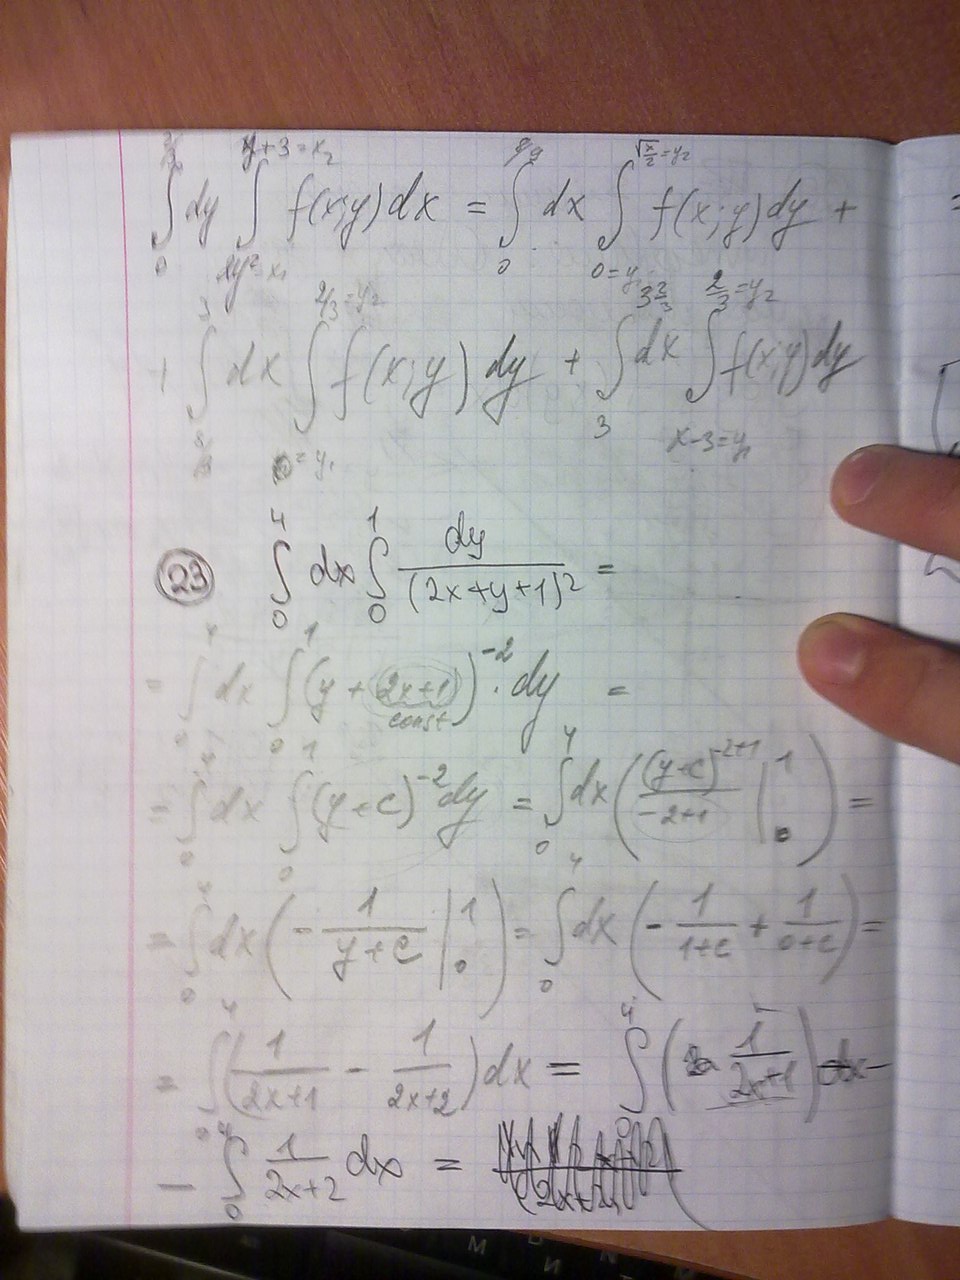 ∫₀ dy ∫_{2y²=x₁}^{y+3=x₂} f(x;y)dx = ∫₀ dx ∫_{0=y₁}^{√(x/2)=y₂} f(x;y)dy +
+ ∫^{3} dx ∫_{0=y₁}^{2/3=y₂} f(x;y)dy + ∫_{3}^{3 2/3} dx ∫_{x-3=y₁}^{2/3=y₂} f(x;y)dy
23 ∫₀⁴ dx ∫₀¹ dy/(2x+y+1)² =
= ∫₀⁴ dx ∫₀¹ (y + 2x+1)⁻² · dy =
const
= ∫₀⁴ dx ∫₀¹ (y+c)⁻² dy = ∫₀⁴ dx ( (y+c)⁻²⁺¹/(-2+1) |₀¹ ) =
= ∫₀⁴ dx ( - 1/(y+c) |₀¹ ) = ∫₀⁴ dx ( - 1/(1+c) + 1/(0+c) ) =
= ∫₀⁴ ( 1/(2x+1) - 1/(2x+2) ) dx = ∫₀⁴ ( 1/(2x+1) ) dx -
- ∫₀⁴ 1/(2x+2) dx =